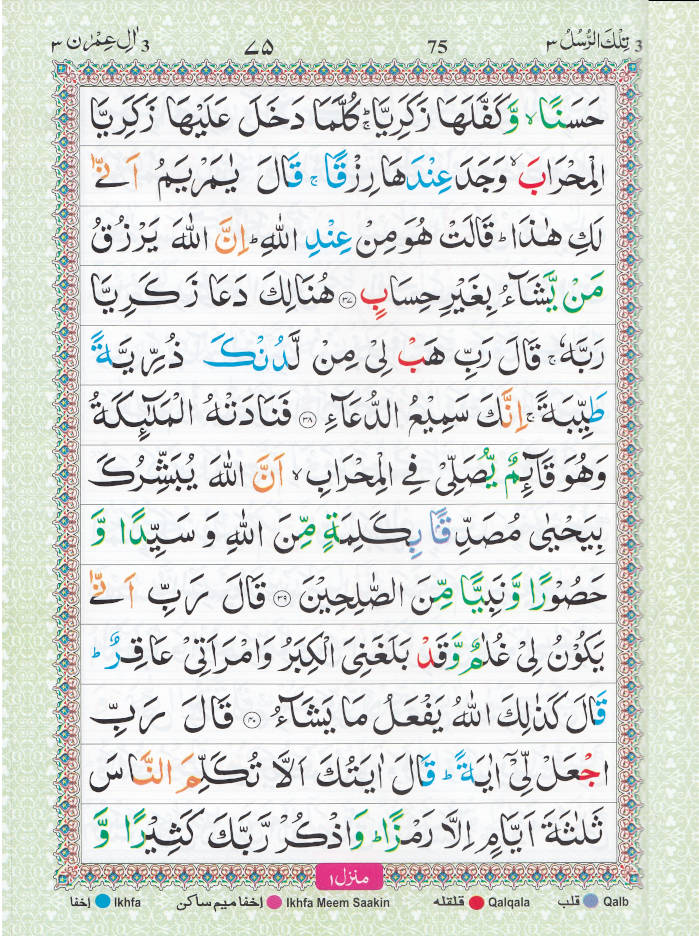 3 تِلْكَ الرُّسُلُ ٣ 75 ٧٥ 3 اٰلِ عِمْرٰن ٣
حَسَنًا ۙ وَّكَفَّلَهَا زَكَرِيَّا ؕۚ كُلَّمَا دَخَلَ عَلَيْهَا زَكَرِيَّا
الْمِحْرَابَ ۙ وَجَدَ عِنْدَهَا رِزْقًا ۚ قَالَ يٰمَرْيَمُ اَنّٰى
لَكِ هٰذَا ؕ قَالَتْ هُوَ مِنْ عِنْدِ اللّٰهِ ؕ اِنَّ اللّٰهَ يَرْزُقُ
مَنْ يَّشَآءُ بِغَيْرِ حِسَابٍ ﴿۳۷﴾ هُنَالِكَ دَعَا زَكَرِيَّا
رَبَّهٗ ۚ قَالَ رَبِّ هَبْ لِىْ مِنْ لَّدُنْكَ ذُرِّيَّةً
طَيِّبَةً ۚ اِنَّكَ سَمِيْعُ الدُّعَآءِ ﴿۳۸﴾ فَنَادَتْهُ الْمَلٰٓئِكَةُ
وَهُوَ قَآئِمٌ يُّصَلِّىْ فِى الْمِحْرَابِ ۙ اَنَّ اللّٰهَ يُبَشِّرُكَ
بِيَحْيٰى مُصَدِّقًۢا بِكَلِمَةٍ مِّنَ اللّٰهِ وَ سَيِّدًا وَّ
حَصُوْرًا وَّنَبِيًّا مِّنَ الصّٰلِحِيْنَ ﴿۳۹﴾ قَالَ رَبِّ اَنّٰى
يَكُوْنُ لِىْ غُلٰمٌ وَّقَدْ بَلَغَنِىَ الْكِبَرُ وَامْرَاَتِىْ عَاقِرٌ ؕ
قَالَ كَذٰلِكَ اللّٰهُ يَفْعَلُ مَا يَشَآءُ ﴿۴۰﴾ قَالَ رَبِّ
اجْعَلْ لِّىْۤ اٰيَةً ؕ قَالَ اٰيَتُكَ اَلَّا تُكَلِّمَ النَّاسَ
ثَلٰثَةَ اَيَّامٍ اِلَّا رَمْزًا ؕ وَاذْكُرْ رَّبَّكَ كَثِيْرًا وَّ
منزل ١
إخفا Ikhfa إخفا ميم ساكن Ikhfa Meem Saakin قلقله Qalqala قلب Qalb